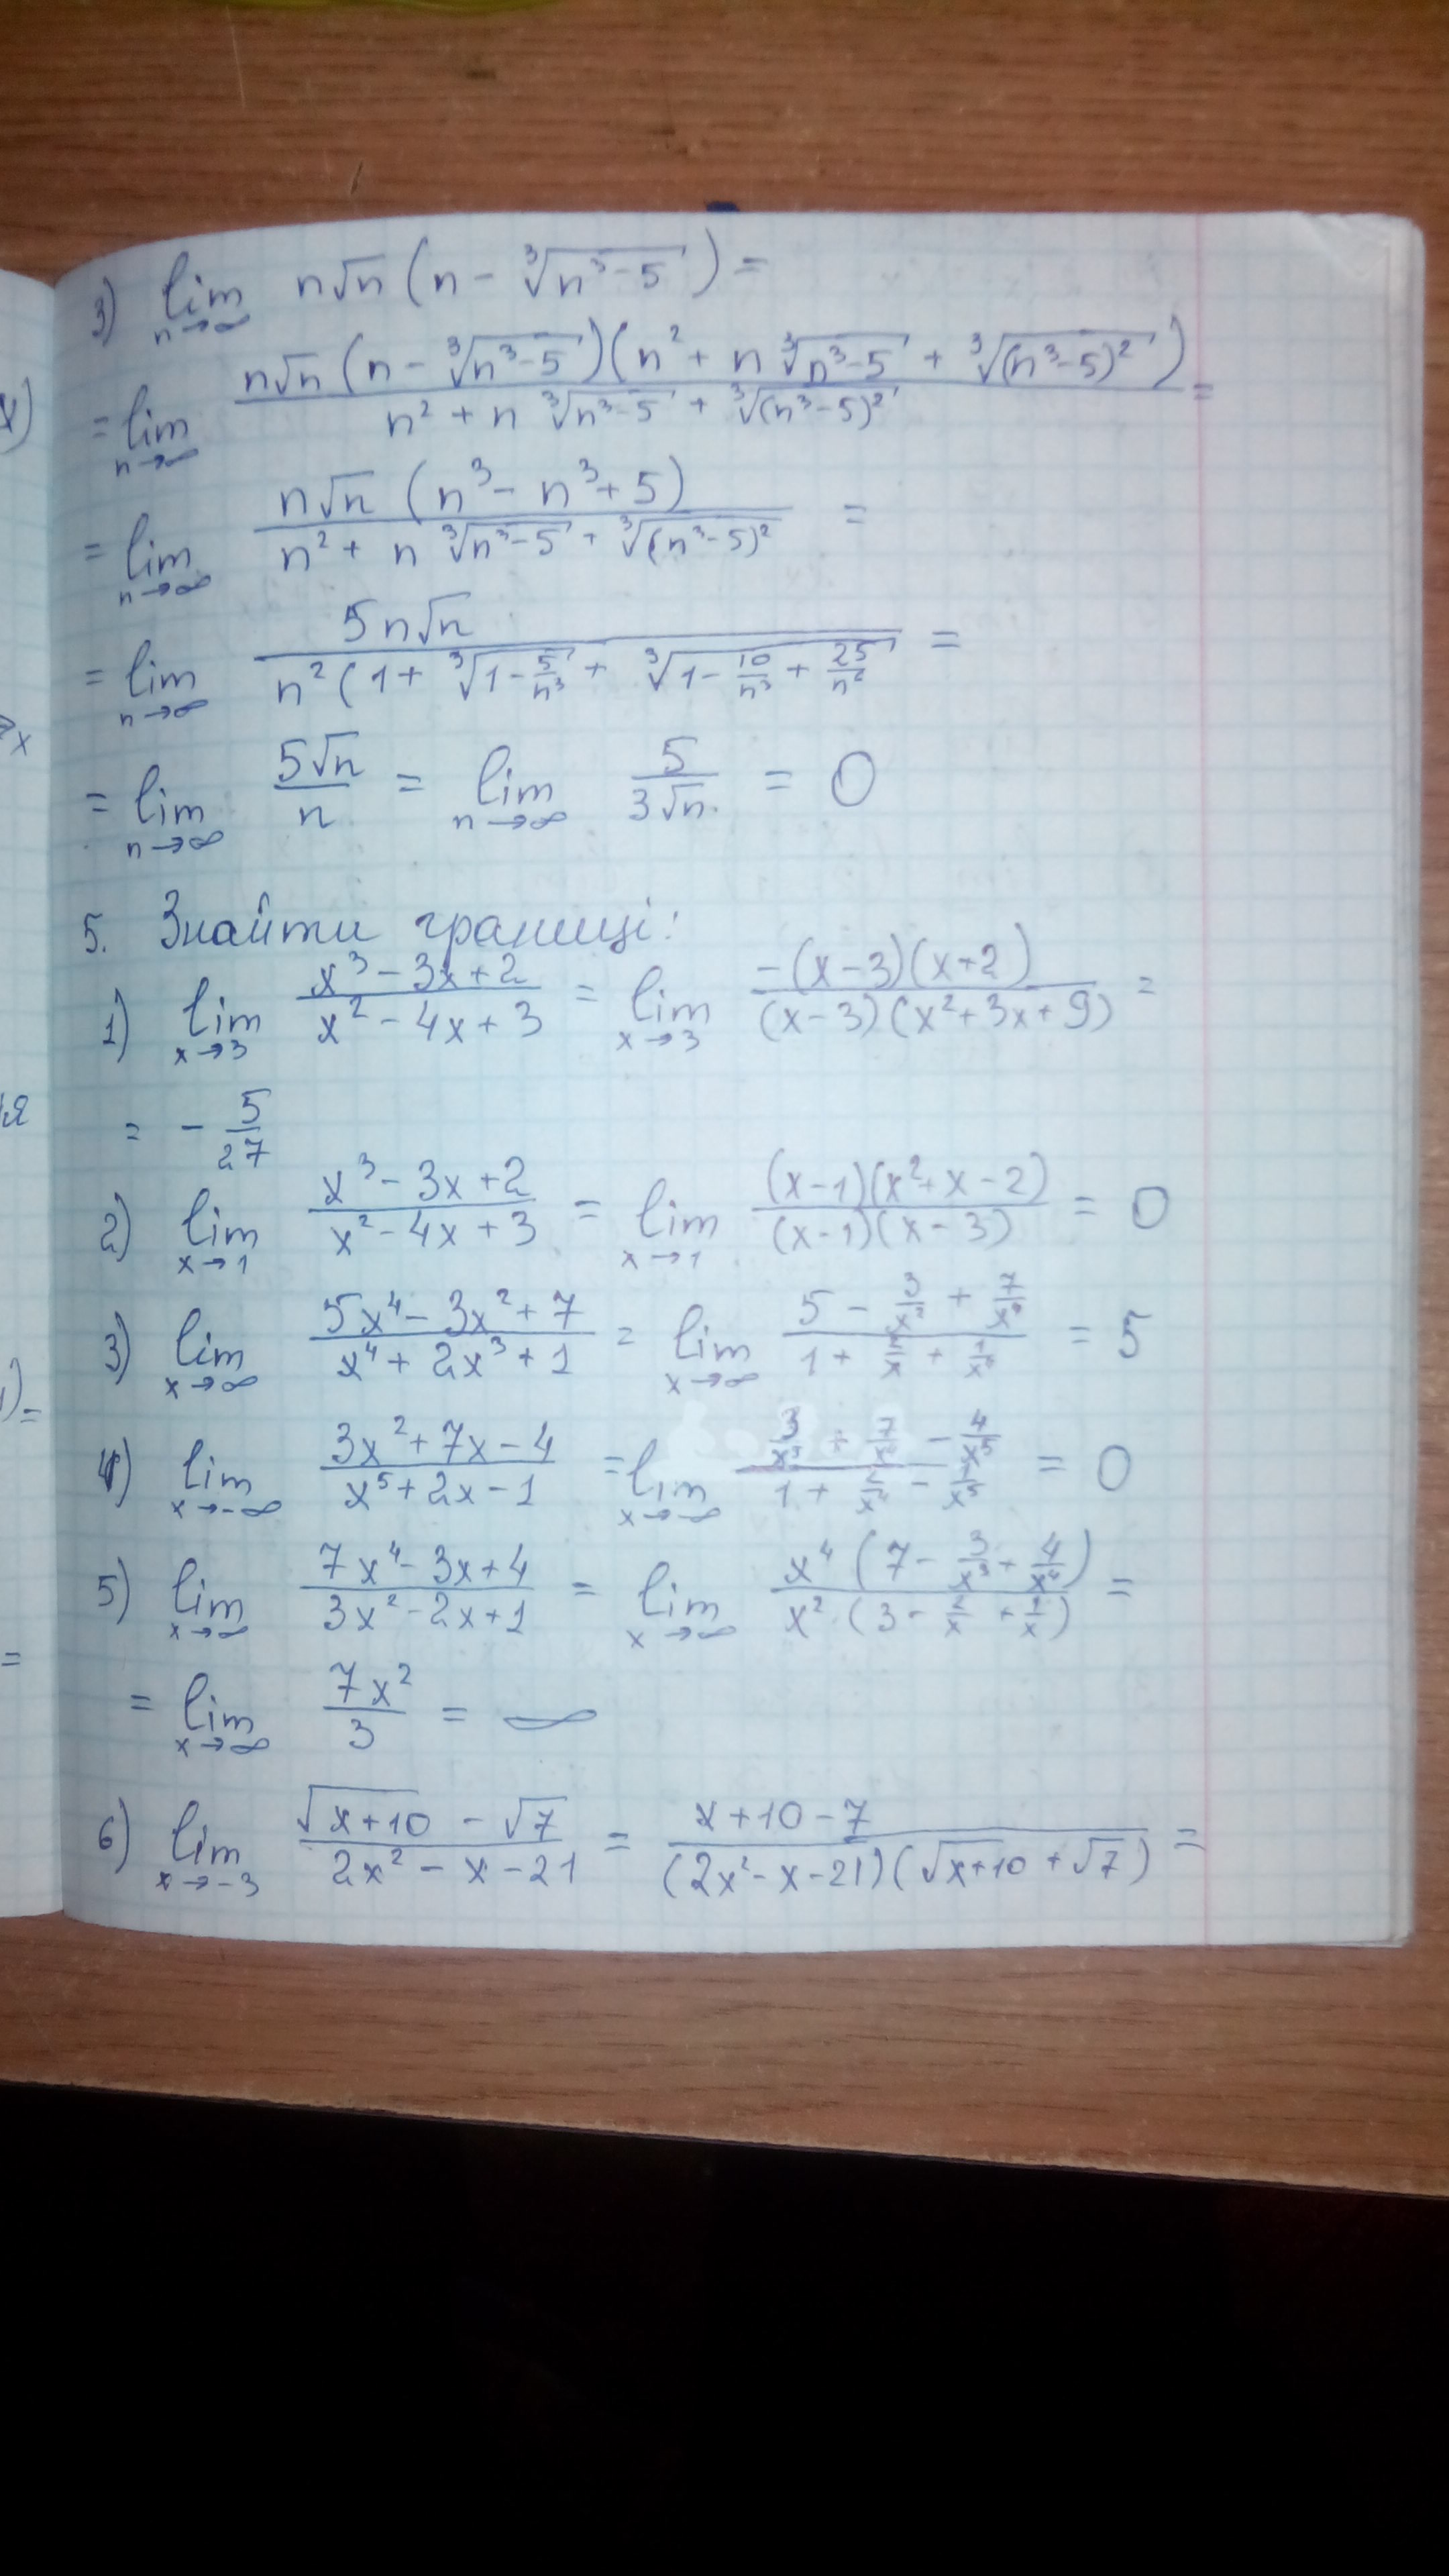 3) lim n→∞ n√n (n - ∛(n³-5)) =
= lim n→∞ (n√n (n - ∛(n³-5))(n² + n ∛(n³-5) + ∛((n³-5)²))) / (n² + n ∛(n³-5) + ∛((n³-5)²)) =
= lim n→∞ (n√n (n³ - n³ + 5)) / (n² + n ∛(n³-5) + ∛((n³-5)²)) =
= lim n→∞ 5n√n / (n² (1 + ∛(1 - 5/n³) + ∛(1 - 10/n³ + 25/n²) =
= lim n→∞ 5√n / n = lim n→∞ 5 / 3√n = 0
5. Знайти границі:
1) lim x→3 (x³ - 3x + 2) / (x² - 4x + 3) = lim x→3 (-(x-3)(x+2)) / ((x-3)(x²+3x+9)) =
= - 5/27
2) lim x→1 (x³ - 3x + 2) / (x² - 4x + 3) = lim x→1 ((x-1)(x²+x-2)) / ((x-1)(x-3)) = 0
3) lim x→∞ (5x⁴ - 3x² + 7) / (x⁴ + 2x³ + 1) = lim x→∞ (5 - 3/x² + 7/x⁴) / (1 + 2/x + 1/x⁴) = 5
4) lim x→-∞ (3x² + 7x - 4) / (x⁵ + 2x - 1) = lim x→-∞ (3/x³ + 7/x⁴ - 4/x⁵) / (1 + 2/x⁴ - 1/x⁵) = 0
5) lim x→∞ (7x⁴ - 3x + 4) / (3x² - 2x + 1) = lim x→∞ (x⁴ (7 - 3/x³ + 4/x⁴)) / (x² (3 - 2/x + 1/x)) =
= lim x→∞ 7x² / 3 = ∞
6) lim x→-3 (√(x+10) - √7) / (2x² - x - 21) = (x + 10 - 7) / ((2x² - x - 21)(√(x+10) + √7)) =